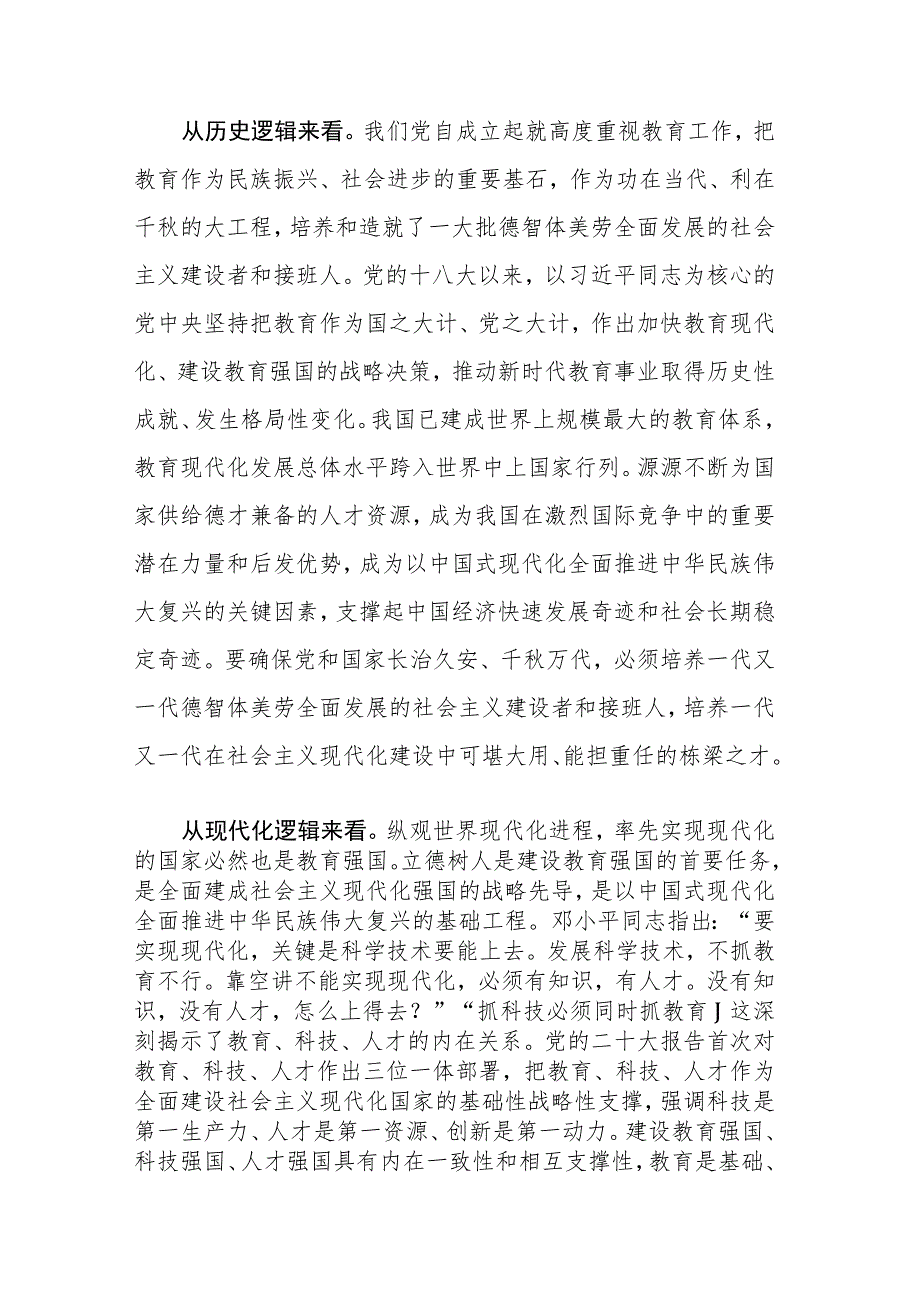 从历史逻辑来看。我们党自成立起就高度重视教育工作，把
教育作为民族振兴、社会进步的重要基石，作为功在当代、利在
千秋的大工程，培养和造就了一大批德智体美劳全面发展的社会
主义建设者和接班人。党的十八大以来，以习近平同志为核心的
党中央坚持把教育作为国之大计、党之大计，作出加快教育现代
化、建设教育强国的战略决策，推动新时代教育事业取得历史性
成就、发生格局性变化。我国已建成世界上规模最大的教育体系，
教育现代化发展总体水平跨入世界中上国家行列。源源不断为国
家供给德才兼备的人才资源，成为我国在激烈国际竞争中的重要
潜在力量和后发优势，成为以中国式现代化全面推进中华民族伟
大复兴的关键因素，支撑起中国经济快速发展奇迹和社会长期稳
定奇迹。要确保党和国家长治久安、千秋万代，必须培养一代又
一代德智体美劳全面发展的社会主义建设者和接班人，培养一代
又一代在社会主义现代化建设中可堪大用、能担重任的栋梁之才。
从现代化逻辑来看。纵观世界现代化进程，率先实现现代化
的国家必然也是教育强国。立德树人是建设教育强国的首要任务，
是全面建成社会主义现代化强国的战略先导，是以中国式现代化
全面推进中华民族伟大复兴的基础工程。邓小平同志指出：“要
实现现代化，关键是科学技术要能上去。发展科学技术，不抓教
育不行。靠空讲不能实现现代化，必须有知识，有人才。没有知
识，没有人才，怎么上得去？”“抓科技必须同时抓教育J这深
刻揭示了教育、科技、人才的内在关系。党的二十大报告首次对
教育、科技、人才作出三位一体部署，把教育、科技、人才作为
全面建设社会主义现代化国家的基础性战略性支撑，强调科技是
第一生产力、人才是第一资源、创新是第一动力。建设教育强国、
科技强国、人才强国具有内在一致性和相互支撑性，教育是基础、